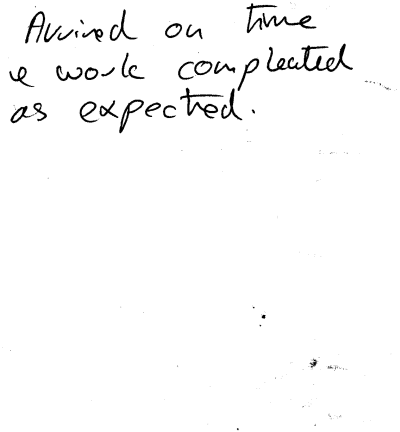 Arrived on time
& work compleated
as expected.